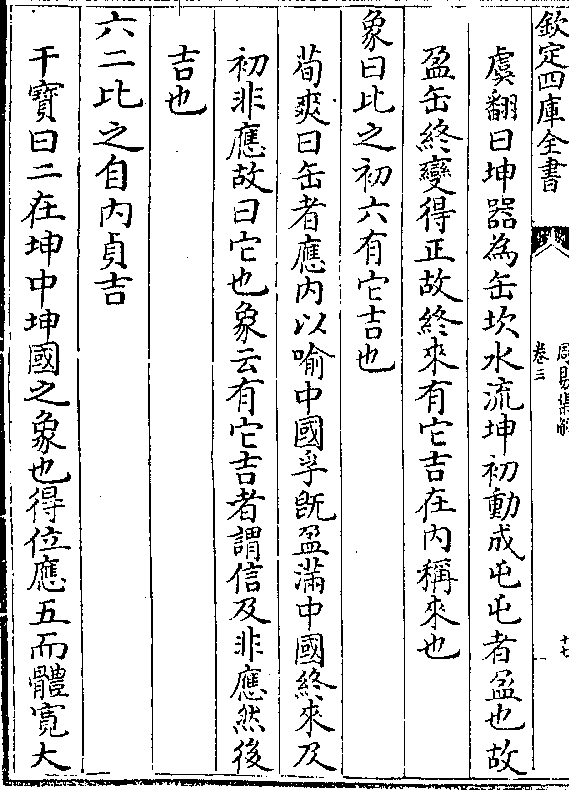 欽定四庫全書
周易集解
卷三
十七
虞翻曰坤器為缶坎水流坤初動成屯屯者盈也故
盈缶終變得正故終來有它吉在内稱來也
象曰比之初六有它吉也
荀爽曰缶者應内以喻中國孚既盈滿中國終來及
初非應故曰它也象云有它吉者謂信及非應然後
吉也
六二比之自内貞吉
干寶曰二在坤中坤國之象也得位應五而體寛大